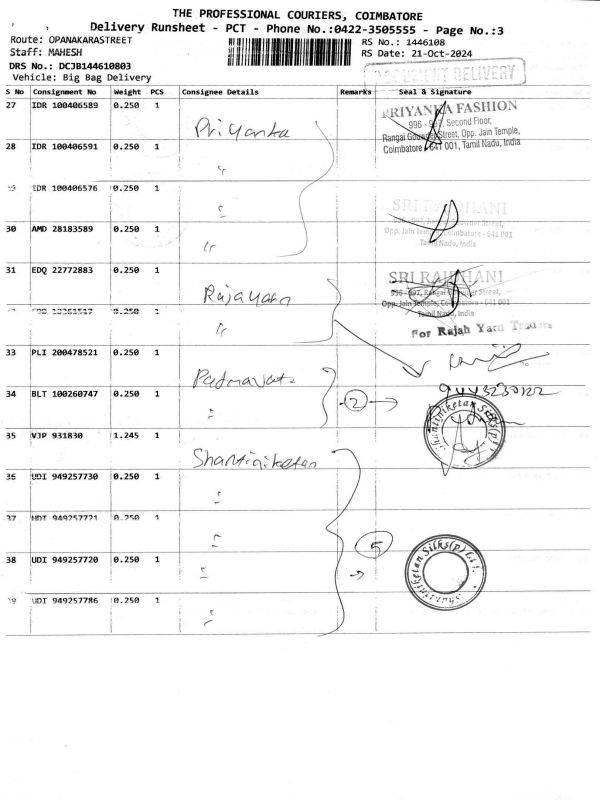 THE PROFESSIONAL COURIERS, COIMBATORE
Delivery Runsheet - PCT - Phone No.:0422-3505555 - Page No.:3
Route: OPANAKARASTREET
RS No.: 1446108
Staff: MAHESH
RS Date: 21-Oct-2024
DRS No.: DCJB144610803
Vehicle: Big Bag Delivery
DOCUMENT DELIVERY
S No Consignment No Weight PCS Consignee Details Remarks Seal & Signature
27 IDR 100406589 0.250 1 Priyanka
PRIYANKA FASHION
996 - 997, Second Floor,
Rangai Gowder Street, Opp. Jain Temple,
Coimbatore - 641 001, Tamil Nadu, India
28 IDR 100406591 0.250 1 "
IDR 100406576 0.250 1 "
SRI RAJDHANI
Opp. Jain Temple, Coimbatore - 641 001
Tamil Nadu, India
30 AMD 28183589 0.250 1 "
31 EDQ 22772883 0.250 1 Rajayarn
SRI RAJDHANI
996 - 997, Rangai Gowder Street,
Opp. Jain Temple, Coimbatore - 641 001
Tamil Nadu, India
0.250 1 "
For Rajah Yarn Traders
33 PLI 200478521 0.250 1 Padmavati
34 BLT 100260747 0.250 1 " 2
Shantiniketan Silks(p)
35 VJP 931830 1.245 1 Shantiniketan
36 UDI 949257730 0.250 1 "
37 UDI 949257721 0.250 1 "
5
38 UDI 949257720 0.250 1 "
Shantiniketan Silks(p) Ltd
UDI 949257786 0.250 1 "